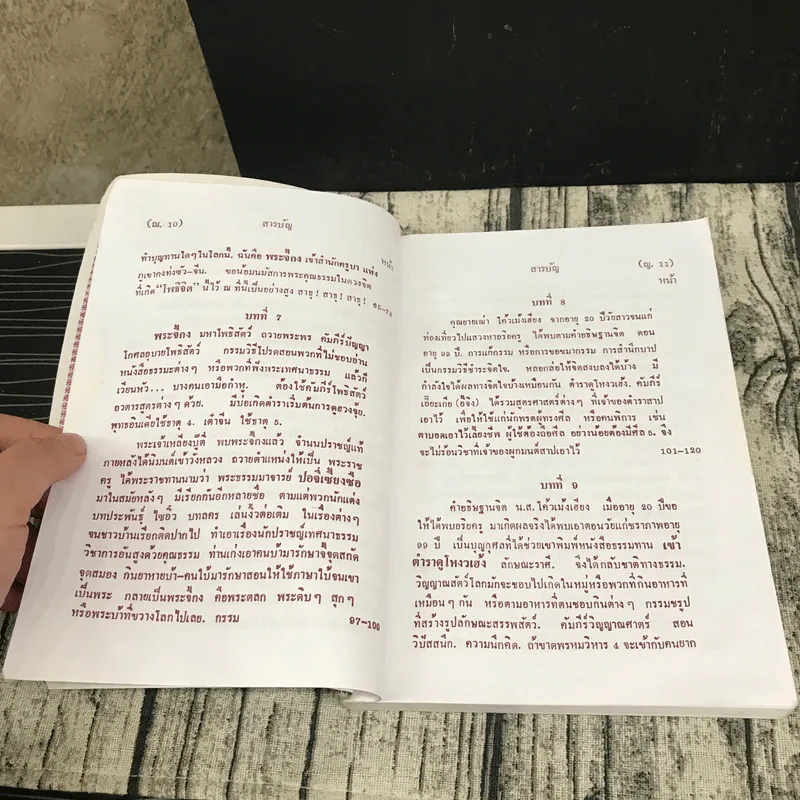 (ฌ. 10) สารบัญ
หน้า
ทำบุญทานใดๆในโลกนี้. ฉันคือ พระจี้กง เจ้าสำนักครูบา แห่ง
ภูเขากงท่งซัว-จีน. ขอน้อมนมัสการพระคุณธรรมในดวงจิต
ที่เกิด "โพธิจิต" นี้ไว้ ณ ที่นี้เป็นอย่างสูง สาธุ! สาธุ! สาธุ! 65-78
บทที่ 7
พระจี้กง มหาโพธิสัตว์ ถวายพระพร คัมภีร์ปัญญา
โกศลอุบายโพธิสัตว์ กรรมวิธีโปรดสอนพวกที่ไม่ชอบอ่าน
หนังสือธรรมะต่างๆ หรือพวกที่ฟังพระเทศนาธรรม แล้วก็
เวียนหัว... บางคนเอามือกำหู. ต้องใช้คัมภีร์โพธิสัตว์
อวตารสูตรต่างๆ ด้วย. มีบ่อเกิดตำราเริ่มต้นการดูฮวงจุ้ย.
พุทธอินเดียใช้ธาตุ 4. เต๋าจีน ใช้ธาตุ 5.
พระเจ้าเหลียงบู๊ตี้ พบพระจี้กงแล้ว จำนนปราชญ์แท้
ภายหลังได้นิมนต์เข้าวังหลวง ถวายตำแหน่งให้เป็น พระราช
ครู ได้พระราชทานนามว่า พระธรรมมาจารย์ ปอจี่เซี้ยงซือ
มาในสมัยหลังๆ มีเรียกกันอีกหลายชื่อ ตามแต่พวกนักแต่ง
บทประพันธ์ ไซอิ๋ว บทละคร เล่นงิ้วต่อเติม ในเรื่องต่างๆ
จนชาวบ้านเรียกติดปากไป ทำเอาเรื่องนักปราชญ์เทศนาธรรม
วิชาการอันสูงด้วยคุณธรรม ท่านเก่งเอาคนบ้ามารักษาจี้จุดสกัด
จุดสมอง กินยาหายบ้า-คนใบ้มารักษาสอนให้ใช้ภาษาใบ้จนเขา
เป็นพระ กลายเป็นพระจี้กง คือพระตลก พระดิบๆ สุกๆ
หรือพระบ้าที่ขวางโลกไปเลย. กรรม 97-100
สารบัญ (ญ. 11)
หน้า
บทที่ 8
คุณยายเฒ่า โค้วเม้งเฮียง จากอายุ 20 ปีวัยสาวจนแก่
ท่องเที่ยวไปแสวงหาอริยครู ได้พบตามคำอธิษฐานจิต ตอน
อายุ 99 ปี. การแก้กรรม หรือการขอขมากรรม การสำนึกบาป
เป็นกรรมวิธีชำระจิตใจ. หลอกล่อให้จิตสงบลงได้บ้าง มี
กำลังใจได้ผลทางจิตใจบ้างเหมือนกัน ตำราดูโหงวเฮ้ง. คัมภีร์
เอี๊ยะเก๊ย (อี้จิง) ได้รวมสูตรศาสตร์ต่างๆ ที่เจ้าของตำราสาป
เอาไว้ เพื่อให้ใช้แก่นักพรตผู้ทรงศีล หรือคนพิการ เช่น
ตาบอดเอาไว้เลี้ยงชีพ ผู้ใช้ต้องถือศีล อย่างน้อยต้องมีศีล 5. จึง
จะไม่ร้อนวิชาที่เจ้าของผูกมนต์สาปเอาไว้ 101-120
บทที่ 9
คำอธิษฐานจิต น.ส. โค้วเม้งเฮียง เมื่ออายุ 20 ปีขอ
ให้ได้พบอริยครู มาเกิดผลจริงได้พบเอาตอนวัยแก่ชราภาพอายุ
99 ปี เป็นบุญกุศลที่ได้ช่วยเขาพิมพ์หนังสือธรรมทาน เข้า
ตำราดูโหงวเฮ้ง ลักษณะราศี. จึงได้กลับชาติทางธรรม.
วิญญาณสัตว์โลกมักจะชอบไปเกิดในหมู่หรือพวกที่กินอาหารที่
เหมือนๆ กัน หรือตามอาหารที่ตนชอบกินต่างๆ กรรมชรูป
ที่สร้างรูปลักษณะสรรพสัตว์. คัมภีร์วิญญาณศาตร์ สอน
วิปัสสนึก. ความนึกคิด. ถ้าขาดพรหมวิหาร 4 จะเข้ากับคนยาก